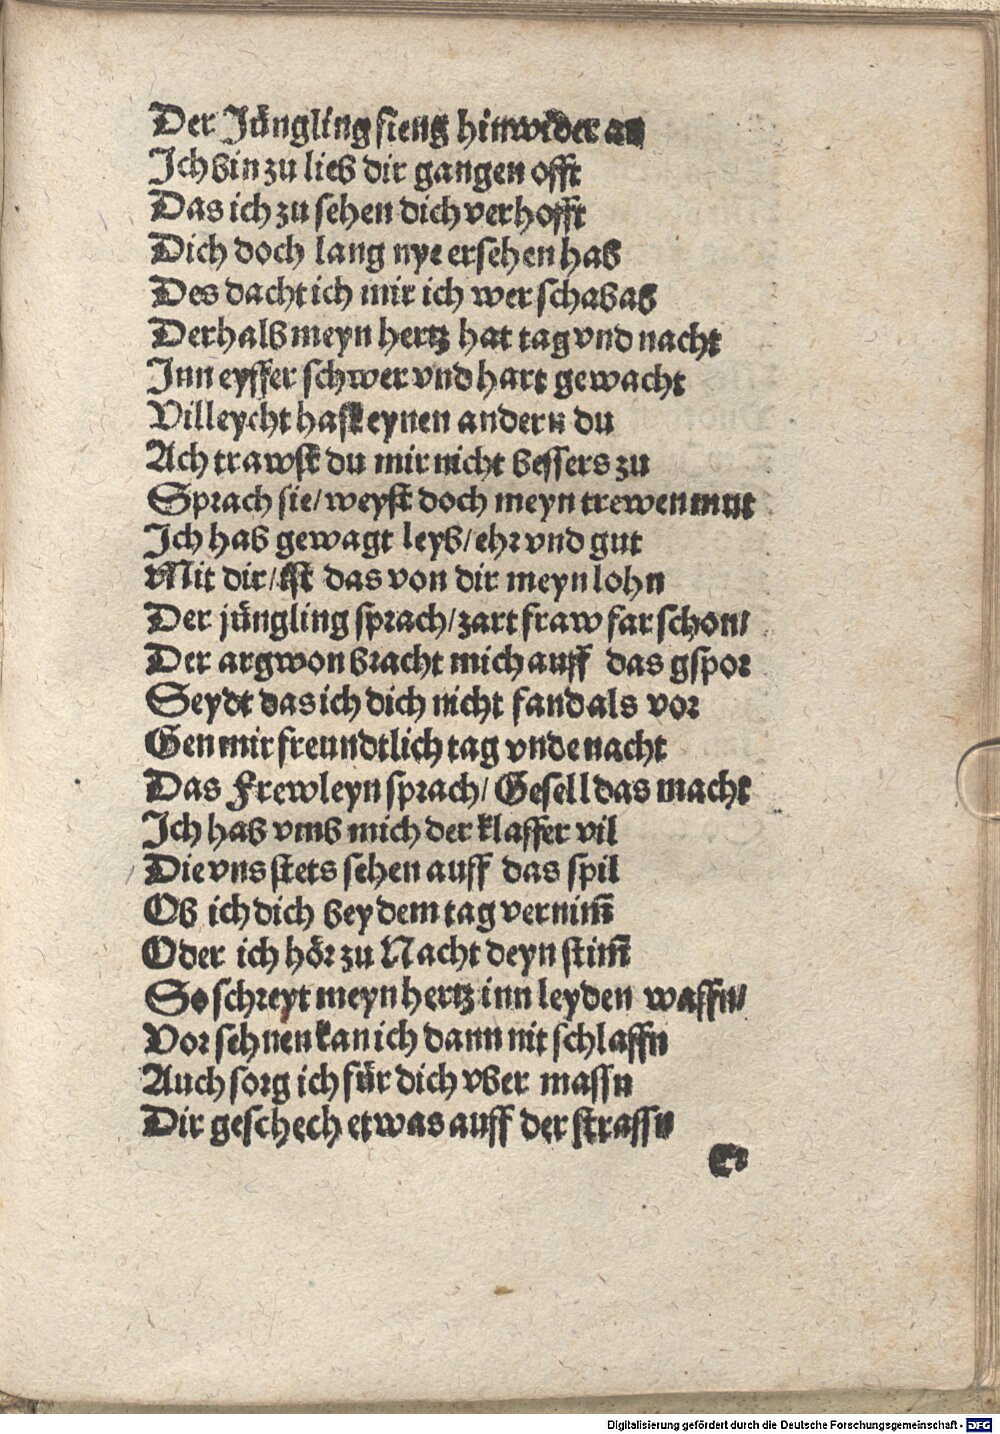 Der Jüngling fieng hinwider an
Ich bin zu lieb dir gangen offt
Das ich zu sehen dich verhofft
Dich doch lang nye ersehen hab
Des dacht ich mir ich wer schabab
Derhalb meyn hertz hat tag vnd nacht
Inn eyffer schwer vnd hart gewacht
Villeycht hast eynen andern du
Ach trawst du mir nicht bessers zu
Sprach sie/ weyst doch meyn trewen mut
Ich hab gewagt leyb/ ehr vnd gut
Mit dir/ ist das von dir meyn lohn
Der jüngling sprach/ zart fraw far schon/
Der argwon bracht mich auff das gspor
Seydt das ich dich nicht fand als vor
Gen mir freundtlich tag vnde nacht
Das Frewleyn sprach/ Gesell das macht
Ich hab vmb mich der klaffer vil
Die vns stets sehen auff das spil
Ob ich dich bey dem tag vernim̃
Oder ich hör zu Nacht deyn stim̃
So schreyt meyn hertz inn leyden waffn/
Vor sehnen kan ich dann nit schlaffn
Auch sorg ich für dich vber massn
Dir geschech etwas auff der strassn
Digitalisierung gefördert durch die Deutsche Forschungsgemeinschaft - DFG